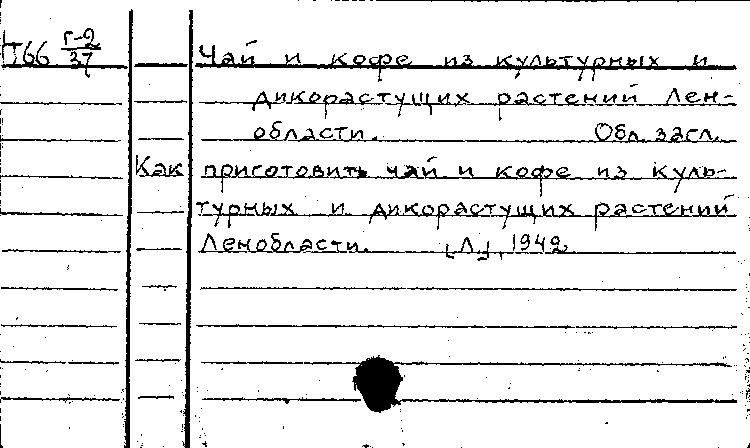 Ц66 Г-2/37
Чай и кофе из культурных и
дикорастущих растений Лен-
области. Обл. загл.
Как приготовить чай и кофе из куль-
турных и дикорастущих растений
Ленобласти. [Л], 1942